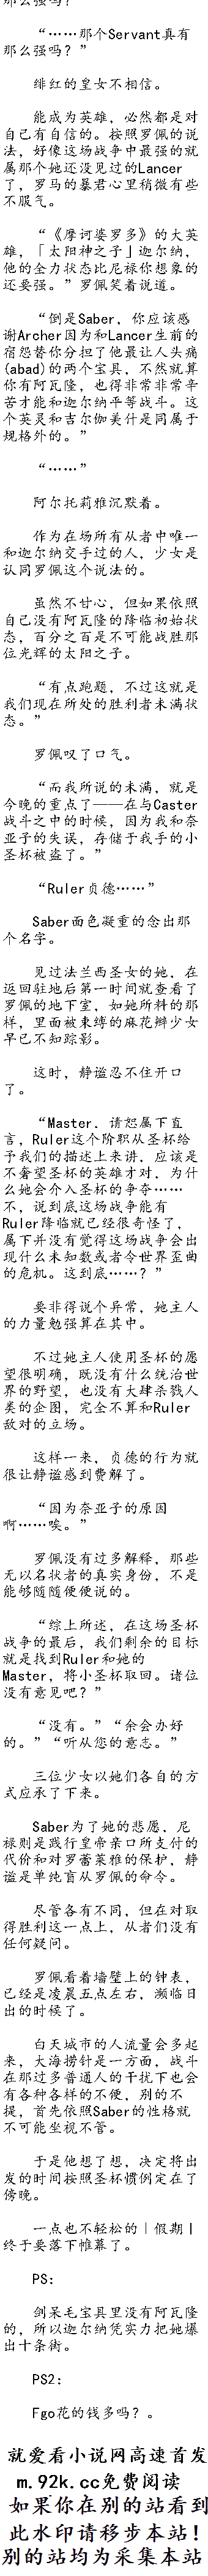 那么强吗？”
“……那个Servant真有
那么强吗？”
绯红的皇女不相信。
能成为英雄，必然都是对
自己有自信的。按照罗佩的说
法，好像这场战争中最强的就
属那个她还没见过的Lancer
了，罗马的暴君心里稍微有些
不服气。
“《摩诃婆罗多》的大英
雄，「太阳神之子」迦尔纳，
他的全力状态比尼禄你想象的
还要强。”罗佩笑着说道。
“倒是Saber，你应该感
谢Archer因为和Lancer生前的
宿怨替你分担了他最让人头痛
(abad)的两个宝具，不然就算
你有阿瓦隆，也得非常非常辛
苦才能和迦尔纳平等战斗。这
个英灵和吉尔伽美什是同属于
规格外的。”
“……”
阿尔托莉雅沉默着。
作为在场所有从者中唯一
和迦尔纳交手过的人，少女是
认同罗佩这个说法的。
虽然不甘心，但如果依照
自己没有阿瓦隆的降临初始状
态，百分之百是不可能战胜那
位光辉的太阳之子。
“有点跑题，不过这就是
我们现在所处的胜利者未满状
态。”
罗佩叹了口气。
“而我所说的未满，就是
今晚的重点了——在与Caster
战斗之中的时候，因为我和奈
亚子的失误，存储于我手的小
圣杯被盗了。”
“Ruler贞德……”
Saber面色凝重的念出那
个名字。
见过法兰西圣女的她，在
返回驻地后第一时间就查看了
罗佩的地下室，如她所料的那
样，里面被束缚的麻花辫少女
早已不知踪影。
这时，静谧忍不住开口
了。
“Master，请恕属下直
言，Ruler这个阶职从圣杯给
予我们的描述上来讲，应该是
不奢望圣杯的英雄才对，为什
么她会介入圣杯的争夺……
不，说到底这场战争能有
Ruler降临就已经很奇怪了，
属下并没有觉得这场战争会出
现什么未知数或者令世界歪曲
的危机。这到底……？”
要非得说个异常，她主人
的力量勉强算在其中。
不过她主人使用圣杯的愿
望很明确，既没有什么统治世
界的野望，也没有大肆杀戮人
类的企图，完全不算和Ruler
敌对的立场。
这样一来，贞德的行为就
很让静谧感到费解了。
“因为奈亚子的原因
啊……唉。”
罗佩没有过多解释，那些
无以名状者的真实身份，不是
能够随随便便说的。
“综上所述，在这场圣杯
战争的最后，我们剩余的目标
就是找到Ruler和她的
Master，将小圣杯取回。诸位
没有意见吧？”
“没有。”“余会办好
的。”“听从您的意志。”
三位少女以她们各自的方
式应承了下来。
Saber为了她的悲愿，尼
禄则是践行皇帝亲口所支付的
代价和对罗蕾莱雅的保护，静
谧是单纯盲从罗佩的命令。
尽管各有不同，但在对取
得胜利这一点上，从者们没有
任何疑问。
罗佩看着墙壁上的钟表，
已经是凌晨五点左右，濒临日
出的时候了。
白天城市的人流量会多起
来，大海捞针是一方面，战斗
在那过多普通人的干扰下也会
有各种各样的不便，别的不
提，首先依照Saber的性格就
不可能坐视不管。
于是他想了想，决定将出
发的时间按照圣杯惯例定在了
傍晚。
一点也不轻松的「假期」
终于要落下帷幕了。
PS：
剑呆毛宝具里没有阿瓦隆
的，所以迦尔纳凭实力把她爆
出十条街。
PS2：
Fgo花的钱多吗？。
就爱看小说网高速首发
m.92k.cc免费阅读
如果你在别的站看到
此水印请移步本站！
别的站均为采集本站